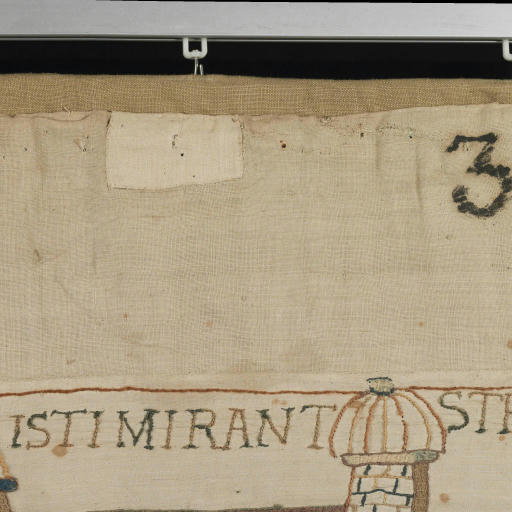 3
ISTI MIRANT STE